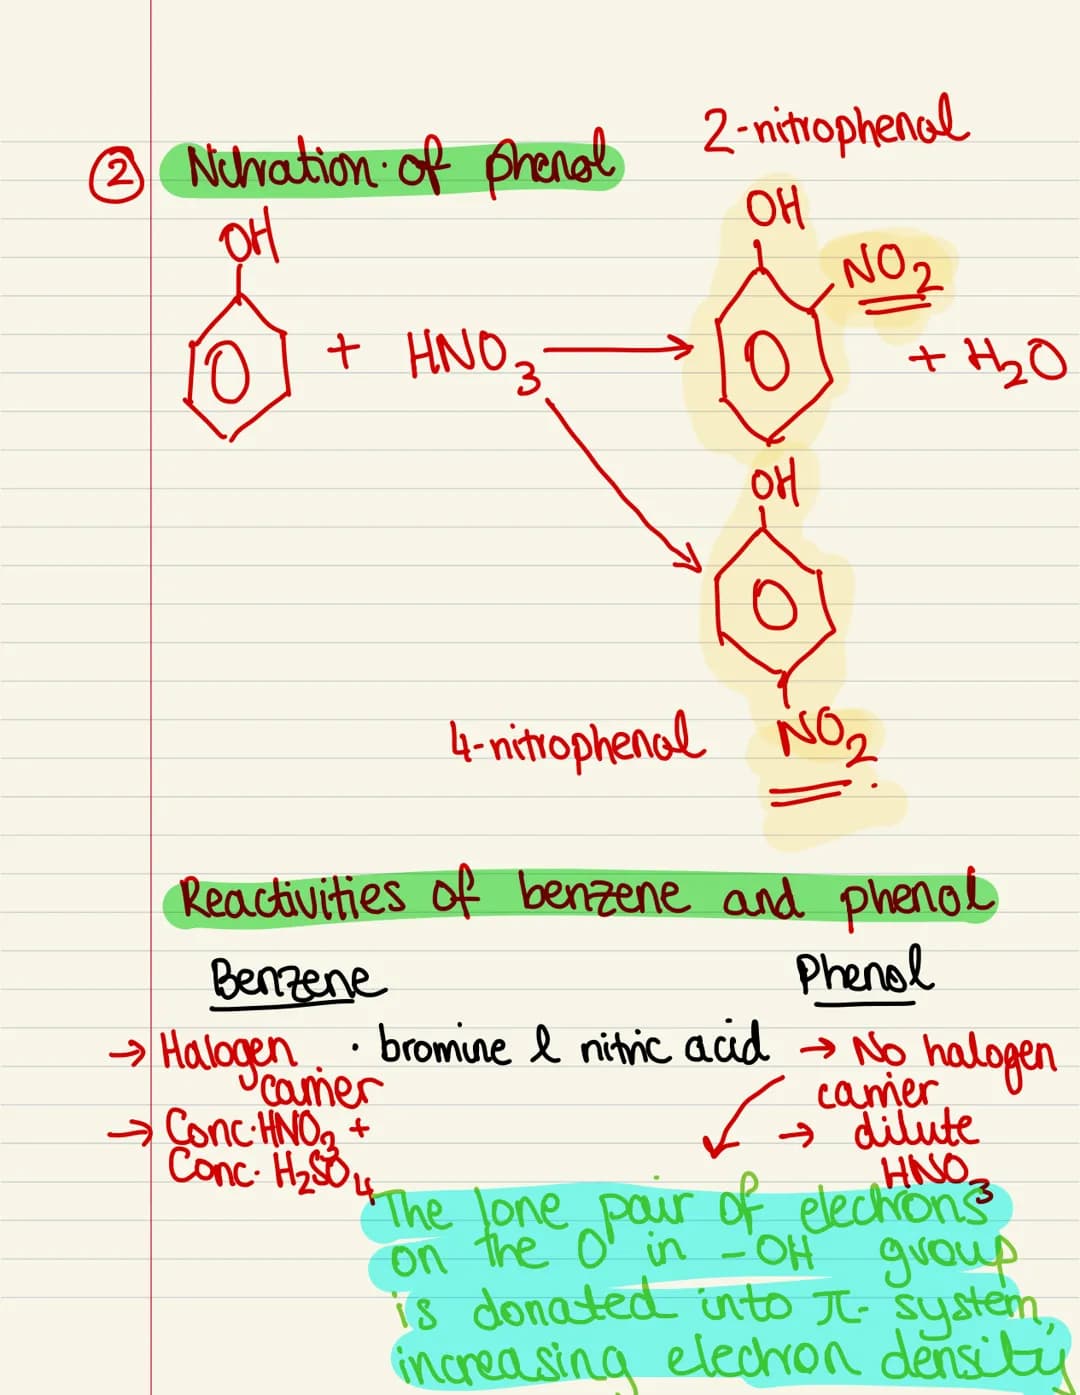 2-nitrophenol
② Nitration of phenol
OH
OH
NO2
+ HNO3
+ H2O
OH
4-nitrophenol
NO2
Reactivities of benzene and phenol
Benzene
Phenol
→ Halogen carrier
• bromine & nitric acid
→ No halogen carrier
→ Conc. HNO3 +
Conc. H2SO4
→ dilute
HNO3
The lone pair of electrons
on the O in -OH group
is donated into π- system,
increasing electron density